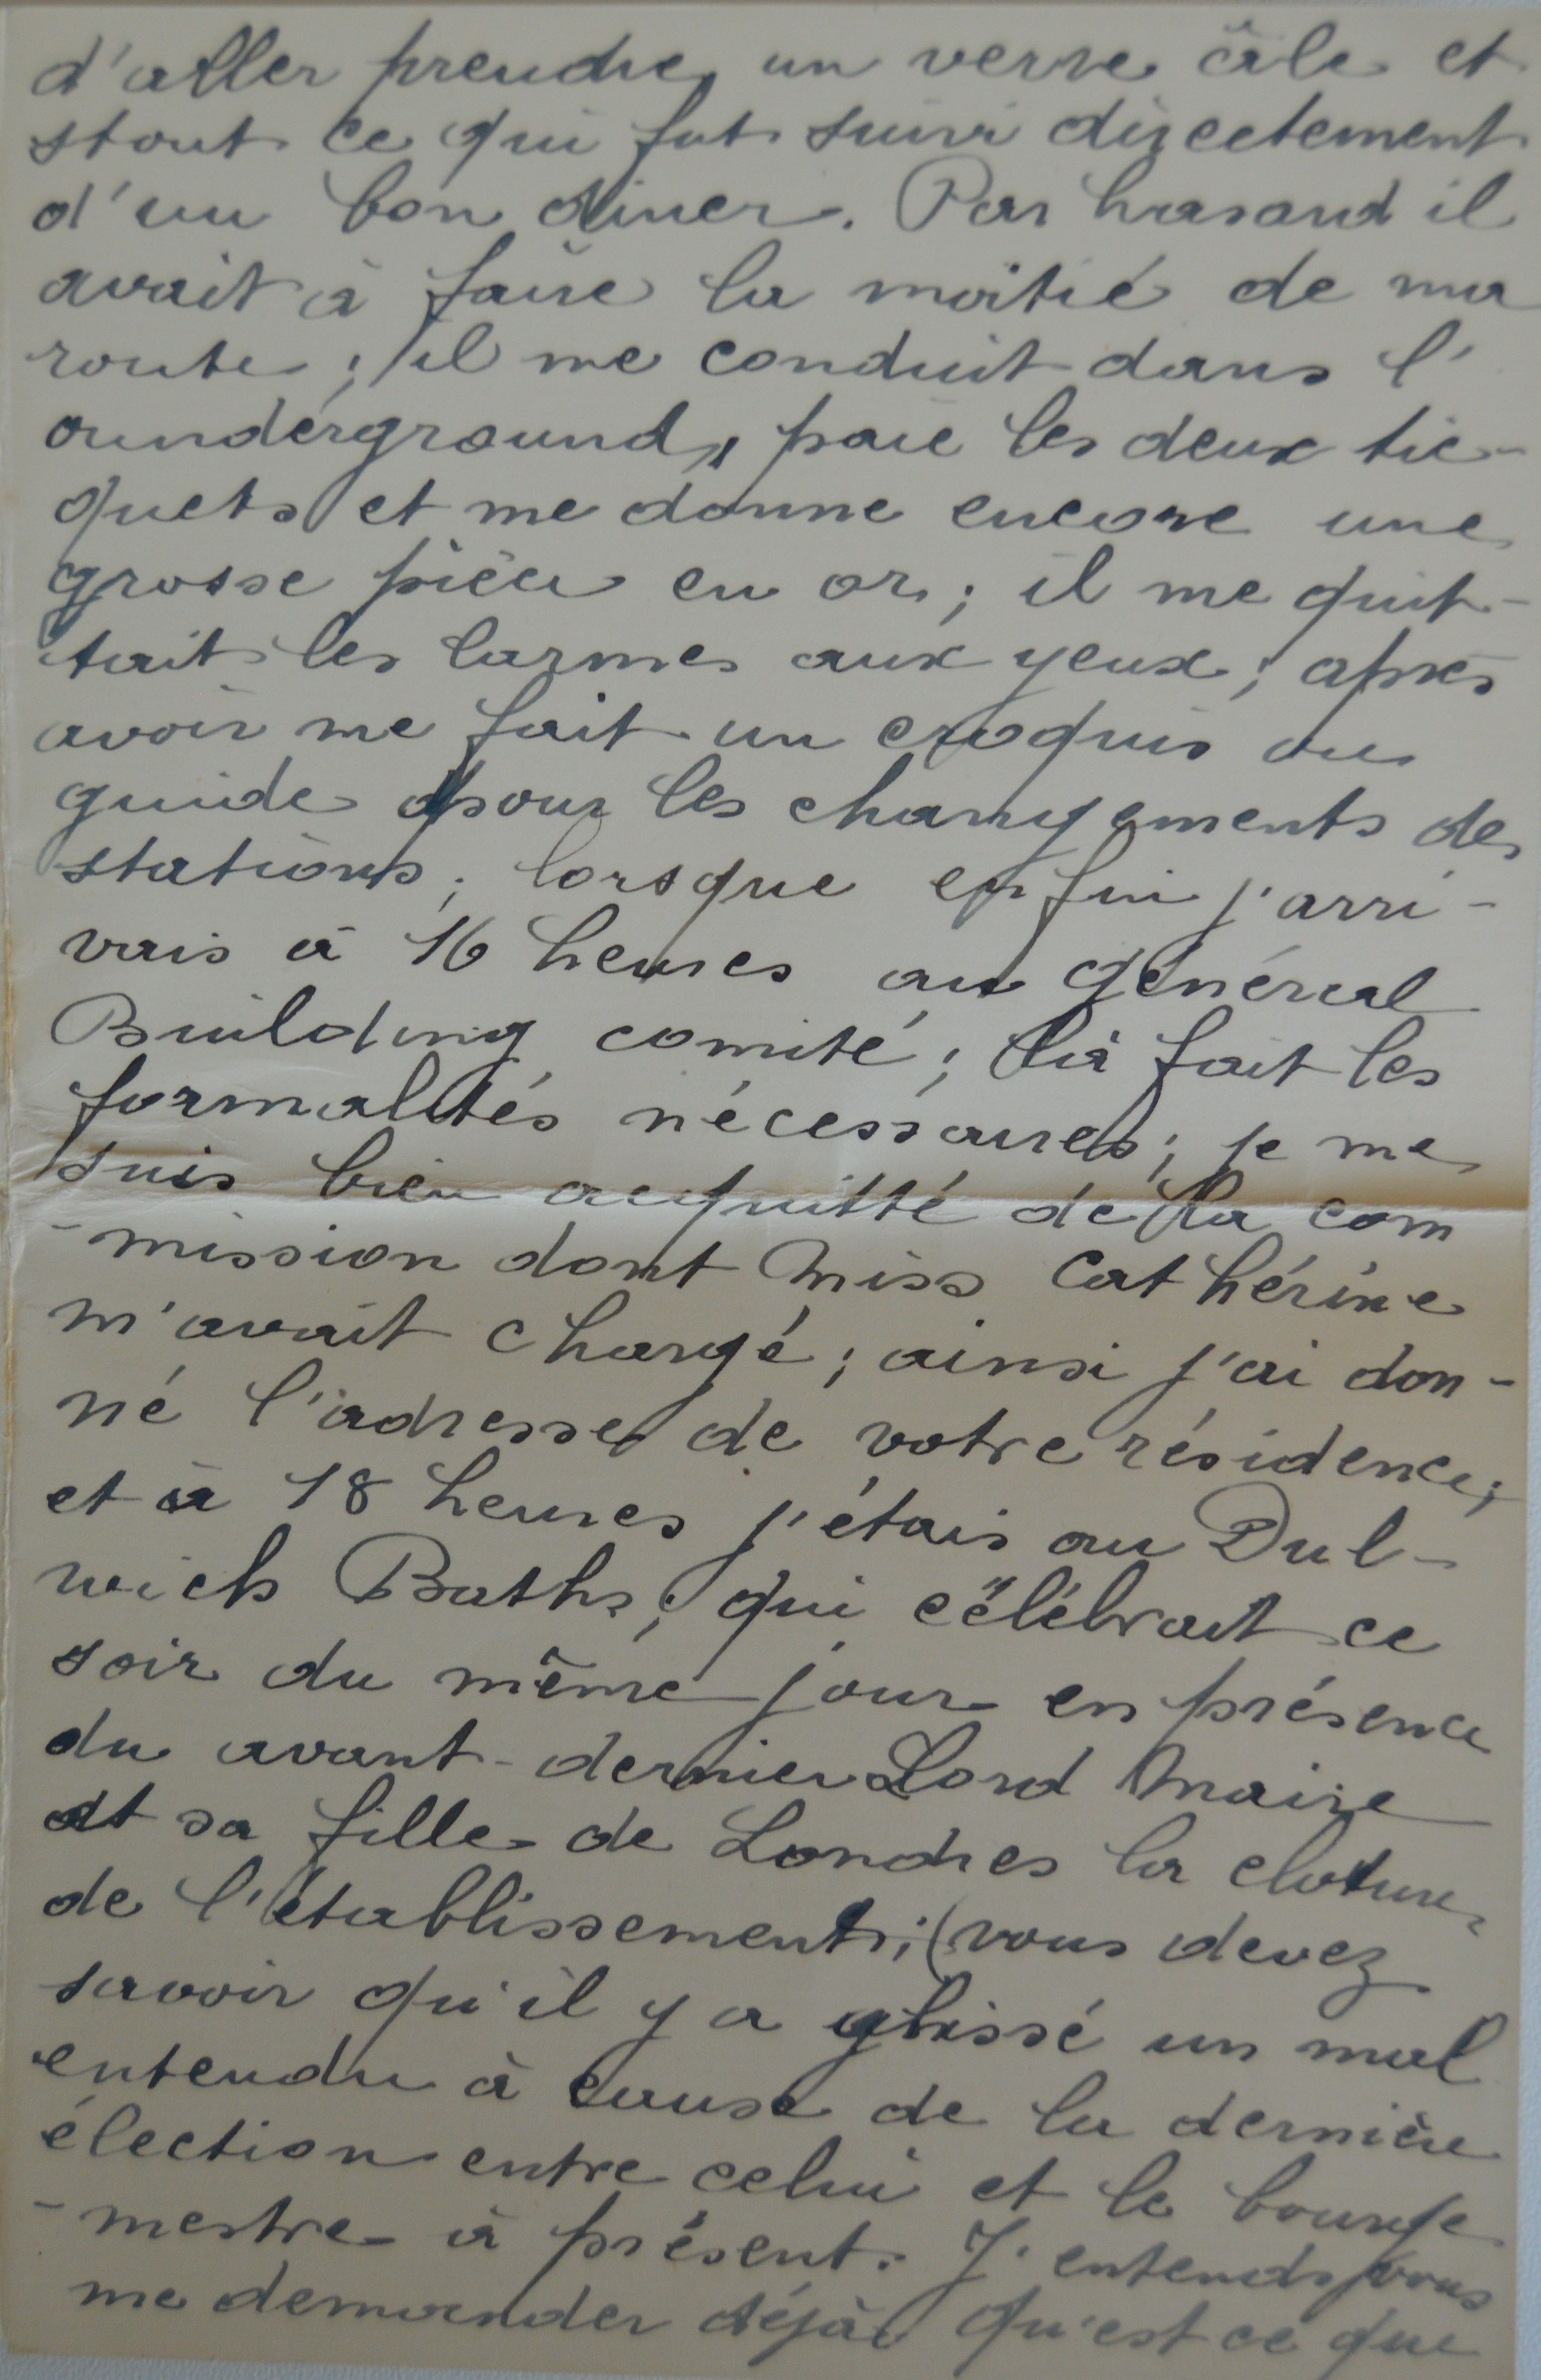 d'aller prendre un verre âle et
stout ce qui fut suivi directement
d'un bon diner. Par hasard il
avait à faire la moitié de ma
route ; il me conduit dans l'
underground, paie les deux tic-
quets et me donne encore une
grosse pièce en or ; il me quit-
tait les larmes aux yeux ; après
avoir me fait un croquis ou
guide pour les changements de
stations ; lorsque enfin j'arri-
vais à 16 heures au général
Building comité ; là fait les
formalités nécessaires ; je me
suis bien acquitté de la com
-mission dont Miss Cathérine
m'avait chargé ; ainsi j'ai don-
né l'adresse de votre résidence ;
et à 18 heures j'étais au Dul-
wich Baths, qui célébrait ce
soir du même jour en présence
du avant-dernier Lord Maire
et sa fille de Londres la cloture
de l'établissement ; (vous devez
savoir qu'il y a glissé un mal
entendu à cause de la dernière
élection entre celui et le bourge
-mestre à présent. J'entends vous
me demander déjà qu'est ce que